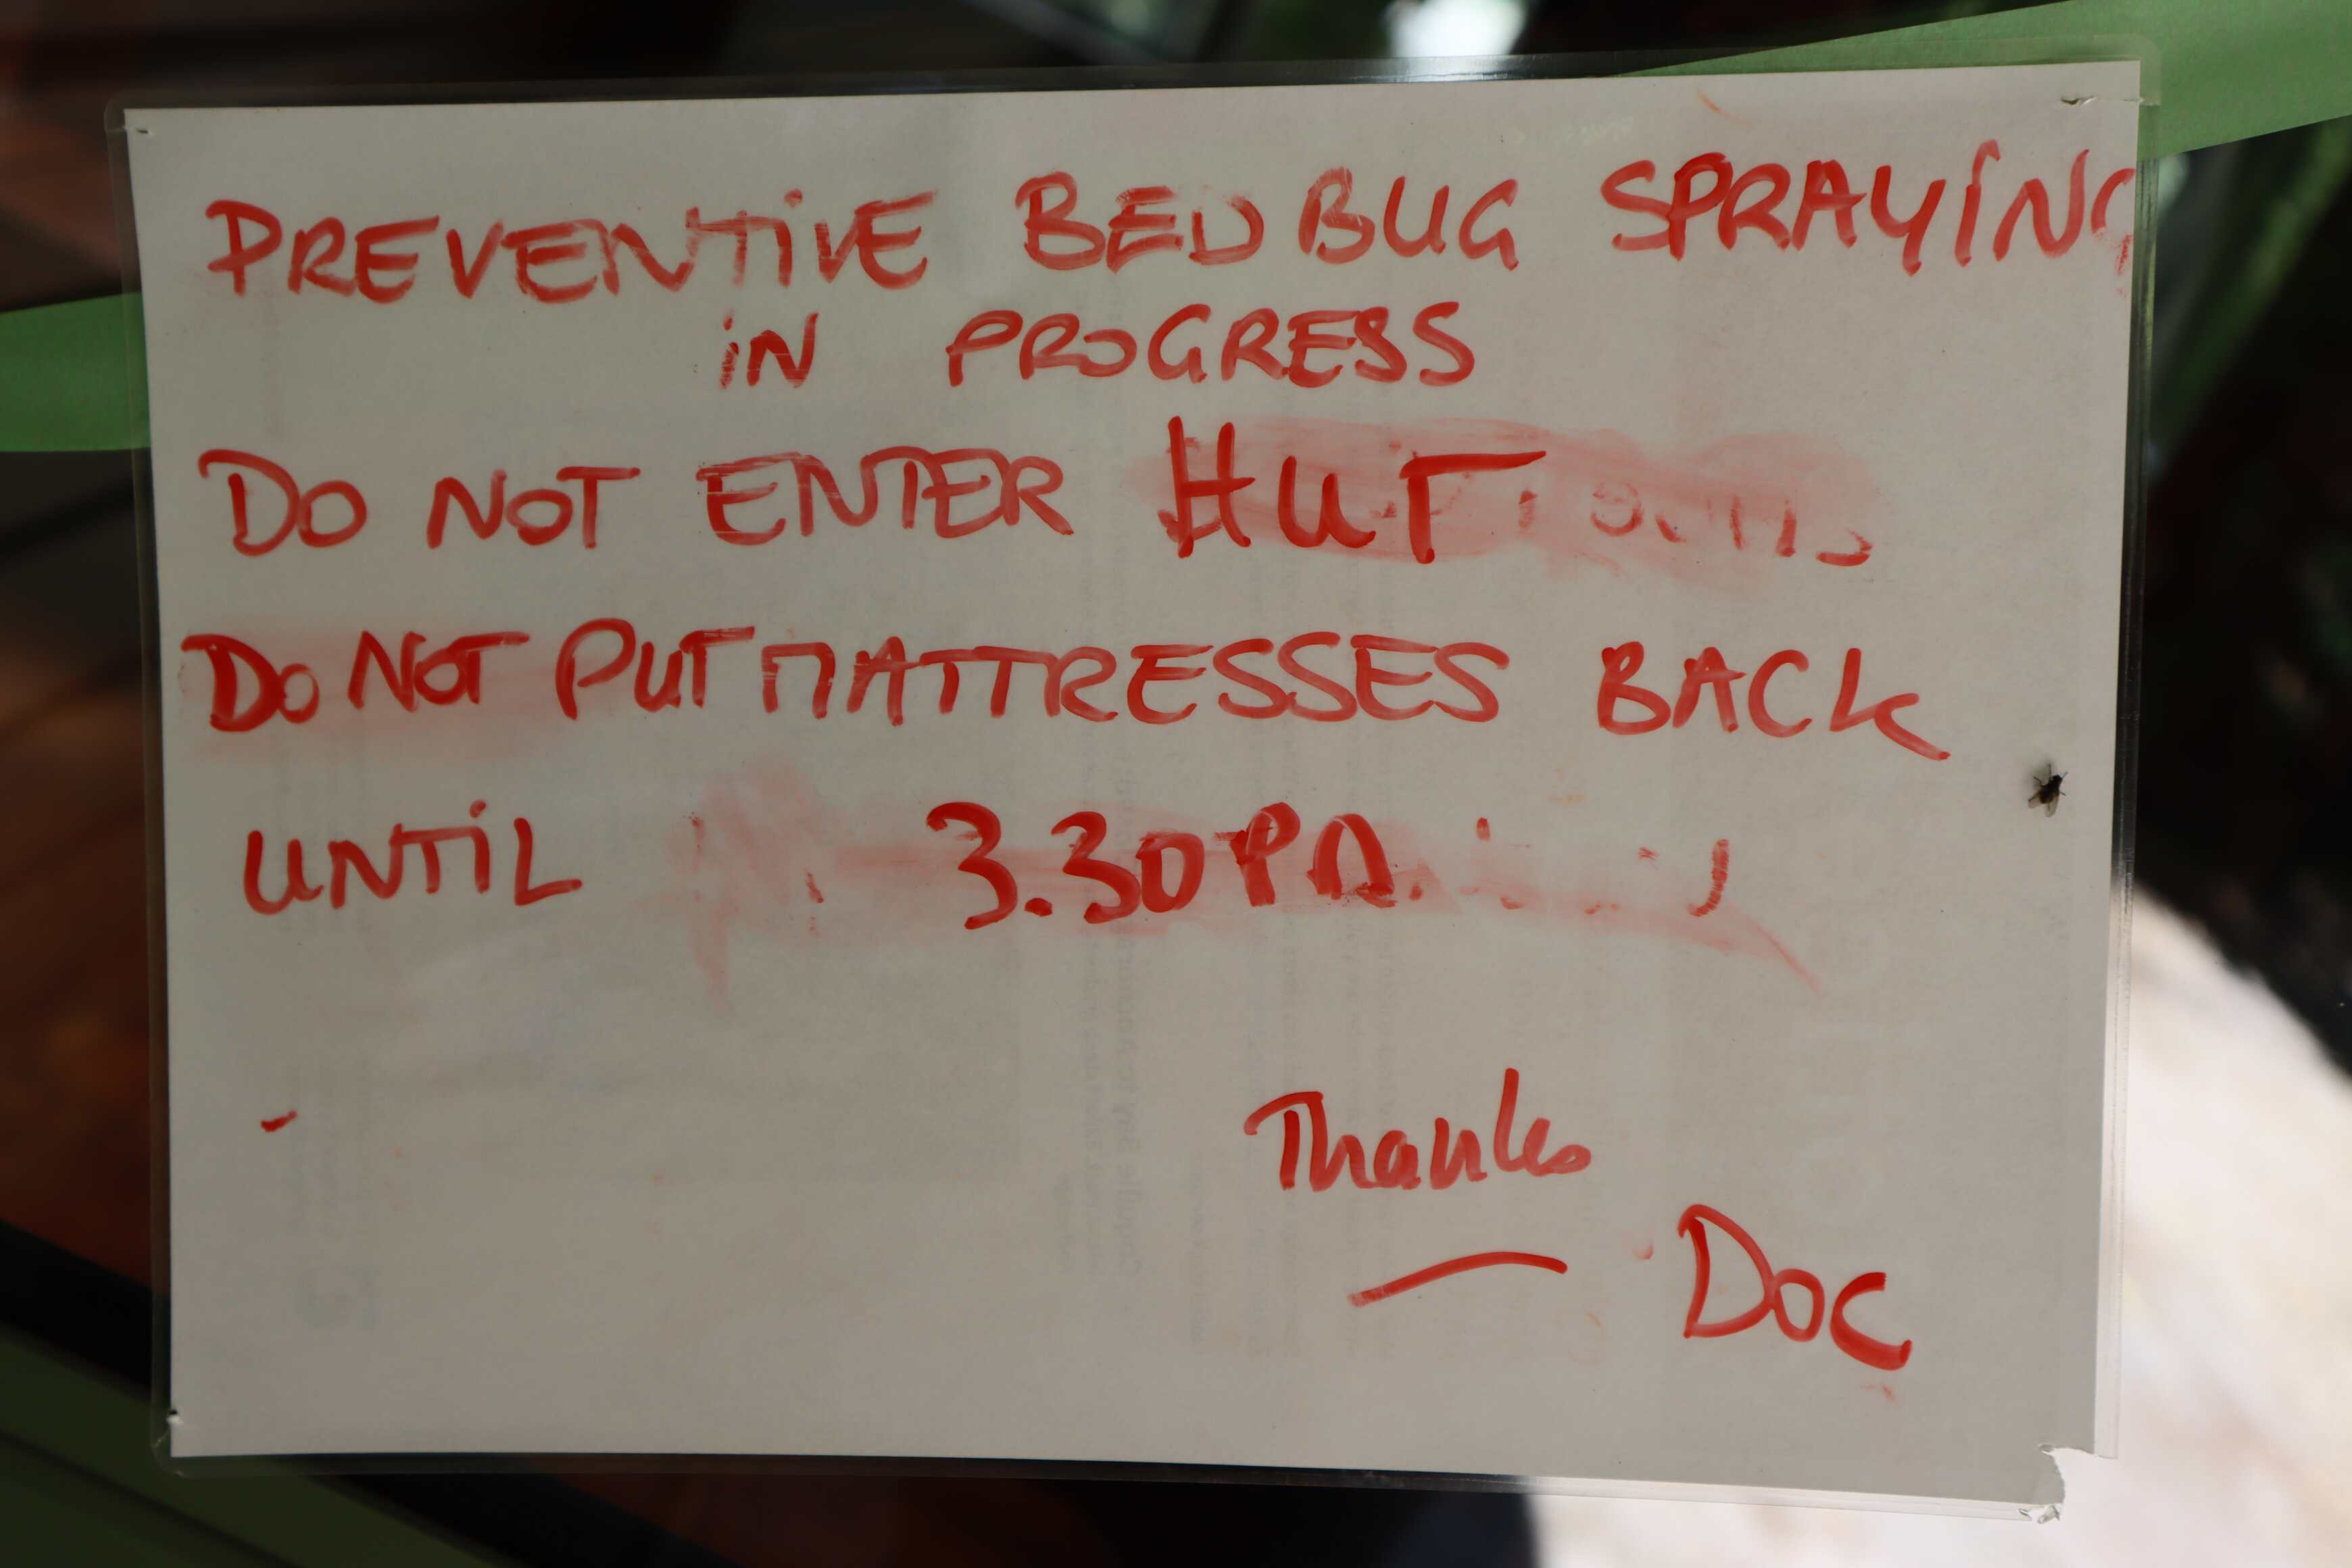 PREVENTIVE BED BUG SPRAYING
IN PROGRESS
DO NOT ENTER HUT
DO NOT PUT MATTRESSES BACK
UNTIL 3.30 PM.
Thanks
— DOC